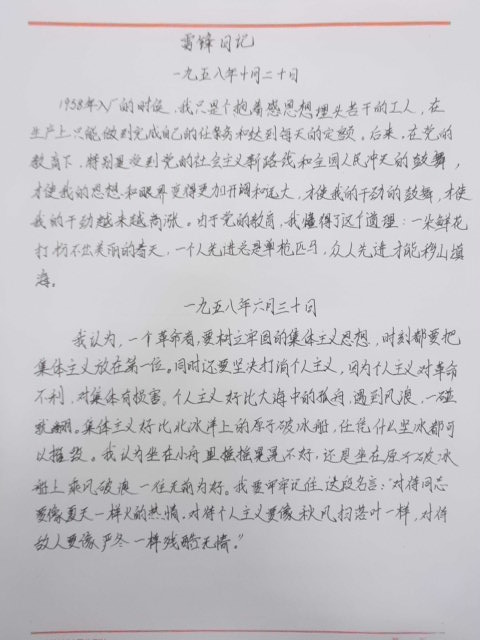 雷锋日记
一九五八年十月二十日
1958年入厂的时候，我只是个抱着感恩思想埋头苦干的工人，在
生产上只能做到完成自己的任务和达到每天的定额。后来，在党的
教育下，特别是受到党的社会主义新路线和全国人民冲天的鼓舞，
才使我的思想和眼界变得更加开阔和远大，才使我的干劲的鼓舞，才使
我的干劲越来越高涨。由于党的教育，我懂得了这个道理：一朵鲜花
打扮不出美丽的春天，一个人先进总是单枪匹马，众人先进才能移山填
海。
一九五八年六月三十日
我认为，一个革命者，要树立牢固的集体主义思想，时刻都要把
集体主义放在第一位。同时还要坚决打消个人主义，因为个人主义对革命
不利，对集体有损害。个人主义好比大海中的孤舟，遇到风浪，一碰
就翻。集体主义好比北冰洋上的原子破冰船，任凭什么坚冰都可
以摧毁。我认为坐在小舟里摇摇晃晃不好，还是坐在原子破冰
船上乘风破浪一往无前为好。我要牢牢记住这段名言："对待同志
要像夏天一样火的热情，对待个人主义要像秋风扫落叶一样，对待
敌人要像严冬一样残酷无情。"